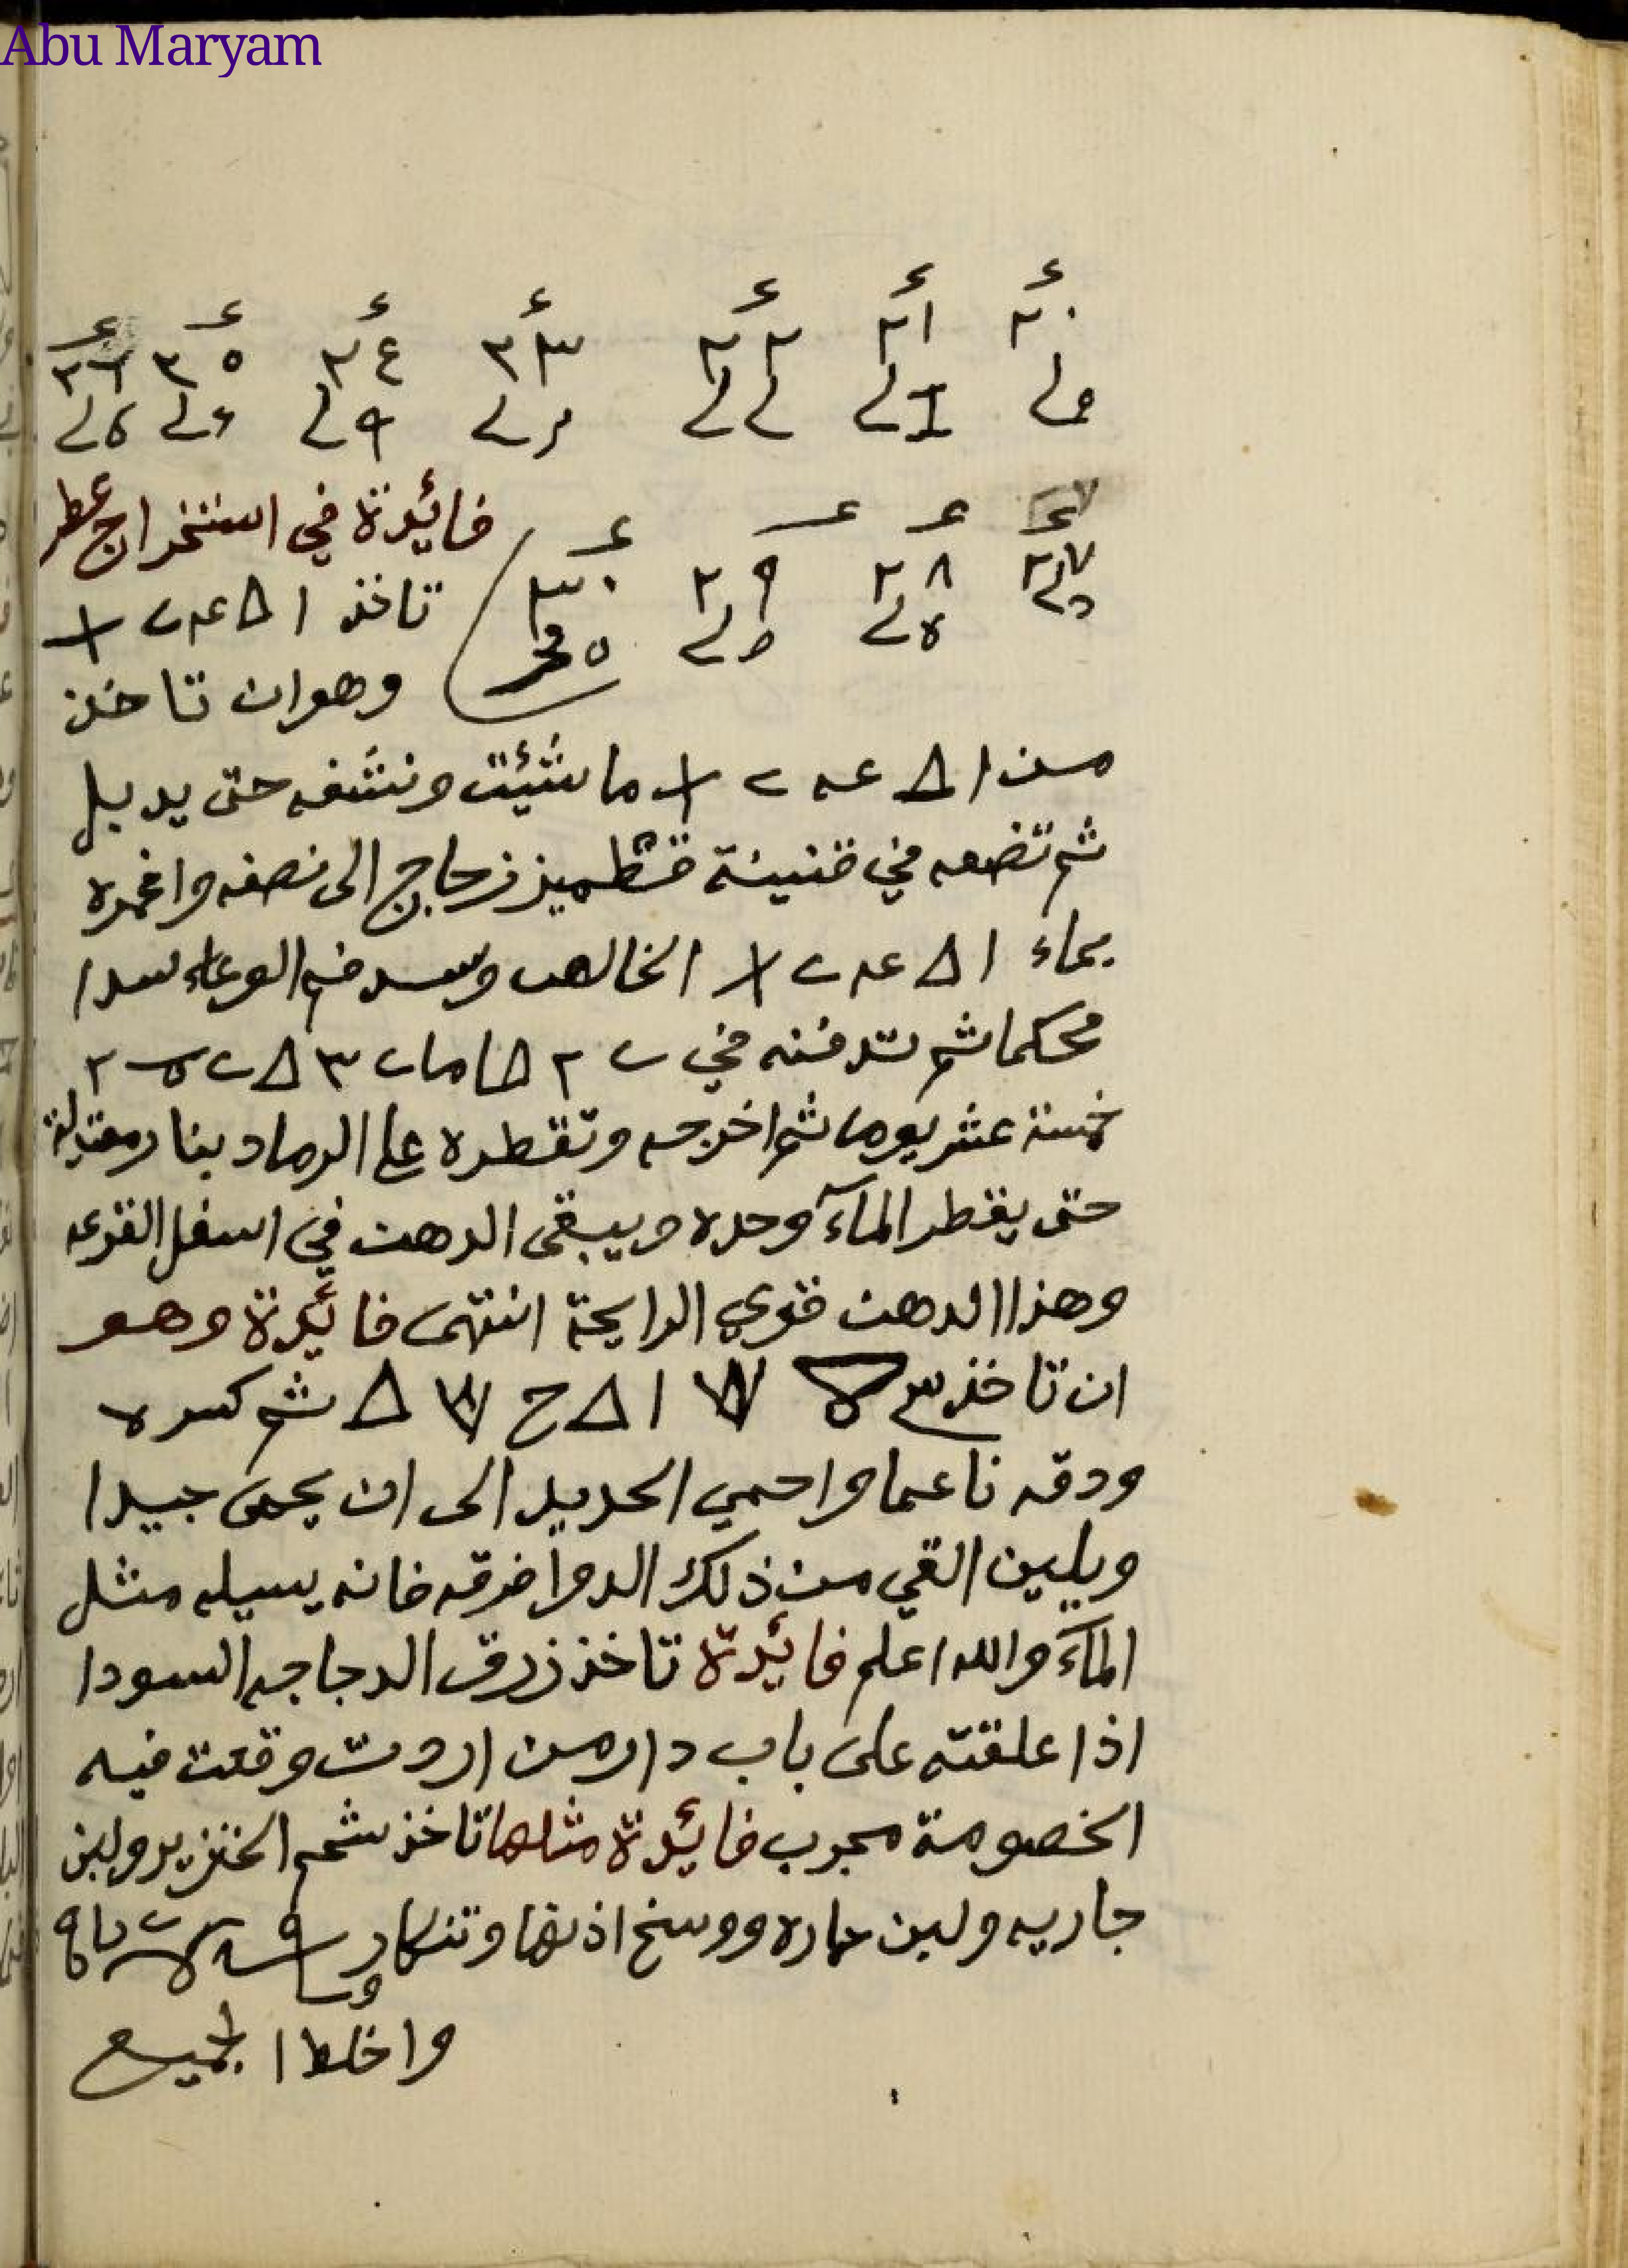 Abu Maryam
ء ء ء ء ء ء ء
٢٠ ٢١ ٢٢ ٢٣ ٢٤ ٢٥ ٢٦
ء ء ء ء
٢٧ ٢٨ ٢٩ ٣٠
فائيدة في استخراج عطر
تاخذ
وهو ان تاخذ
من ما شئيت ونشفه حتى يدبل
ثم تضعه في قنينة قطميز زجاج الى نصفه واغمره
بماء الخالص وسد فم الوعاء سدا
محكما ثم تدفنه في
خمسة عشر يوما ثم اخرجه وتقطره على الرماد بنار معتدلة
حتى يقطر المآء وحده ويبقى الدهن في اسفل القرعه
وهذا الدهن قوي الرايحة انتهى فائيدة وهو
ان تاخذ ثم كسره
ودقه ناعما واحمي الحديد الى ان يحمى جيدا
ويلين القي من ذلك الدوا فوقه فانه يسيله مثل
المآء والله اعلم فائيدة تاخذ زرق الدجاجه السودا
اذا علقته على باب دار من اردت وقعت فيه
الخصومة مجرب فائيدة مثلها تاخذ شحم الخنزير ولبن
جاريه ولبن حماره ووسخ اذنها وتنكار
واخلط الجميع